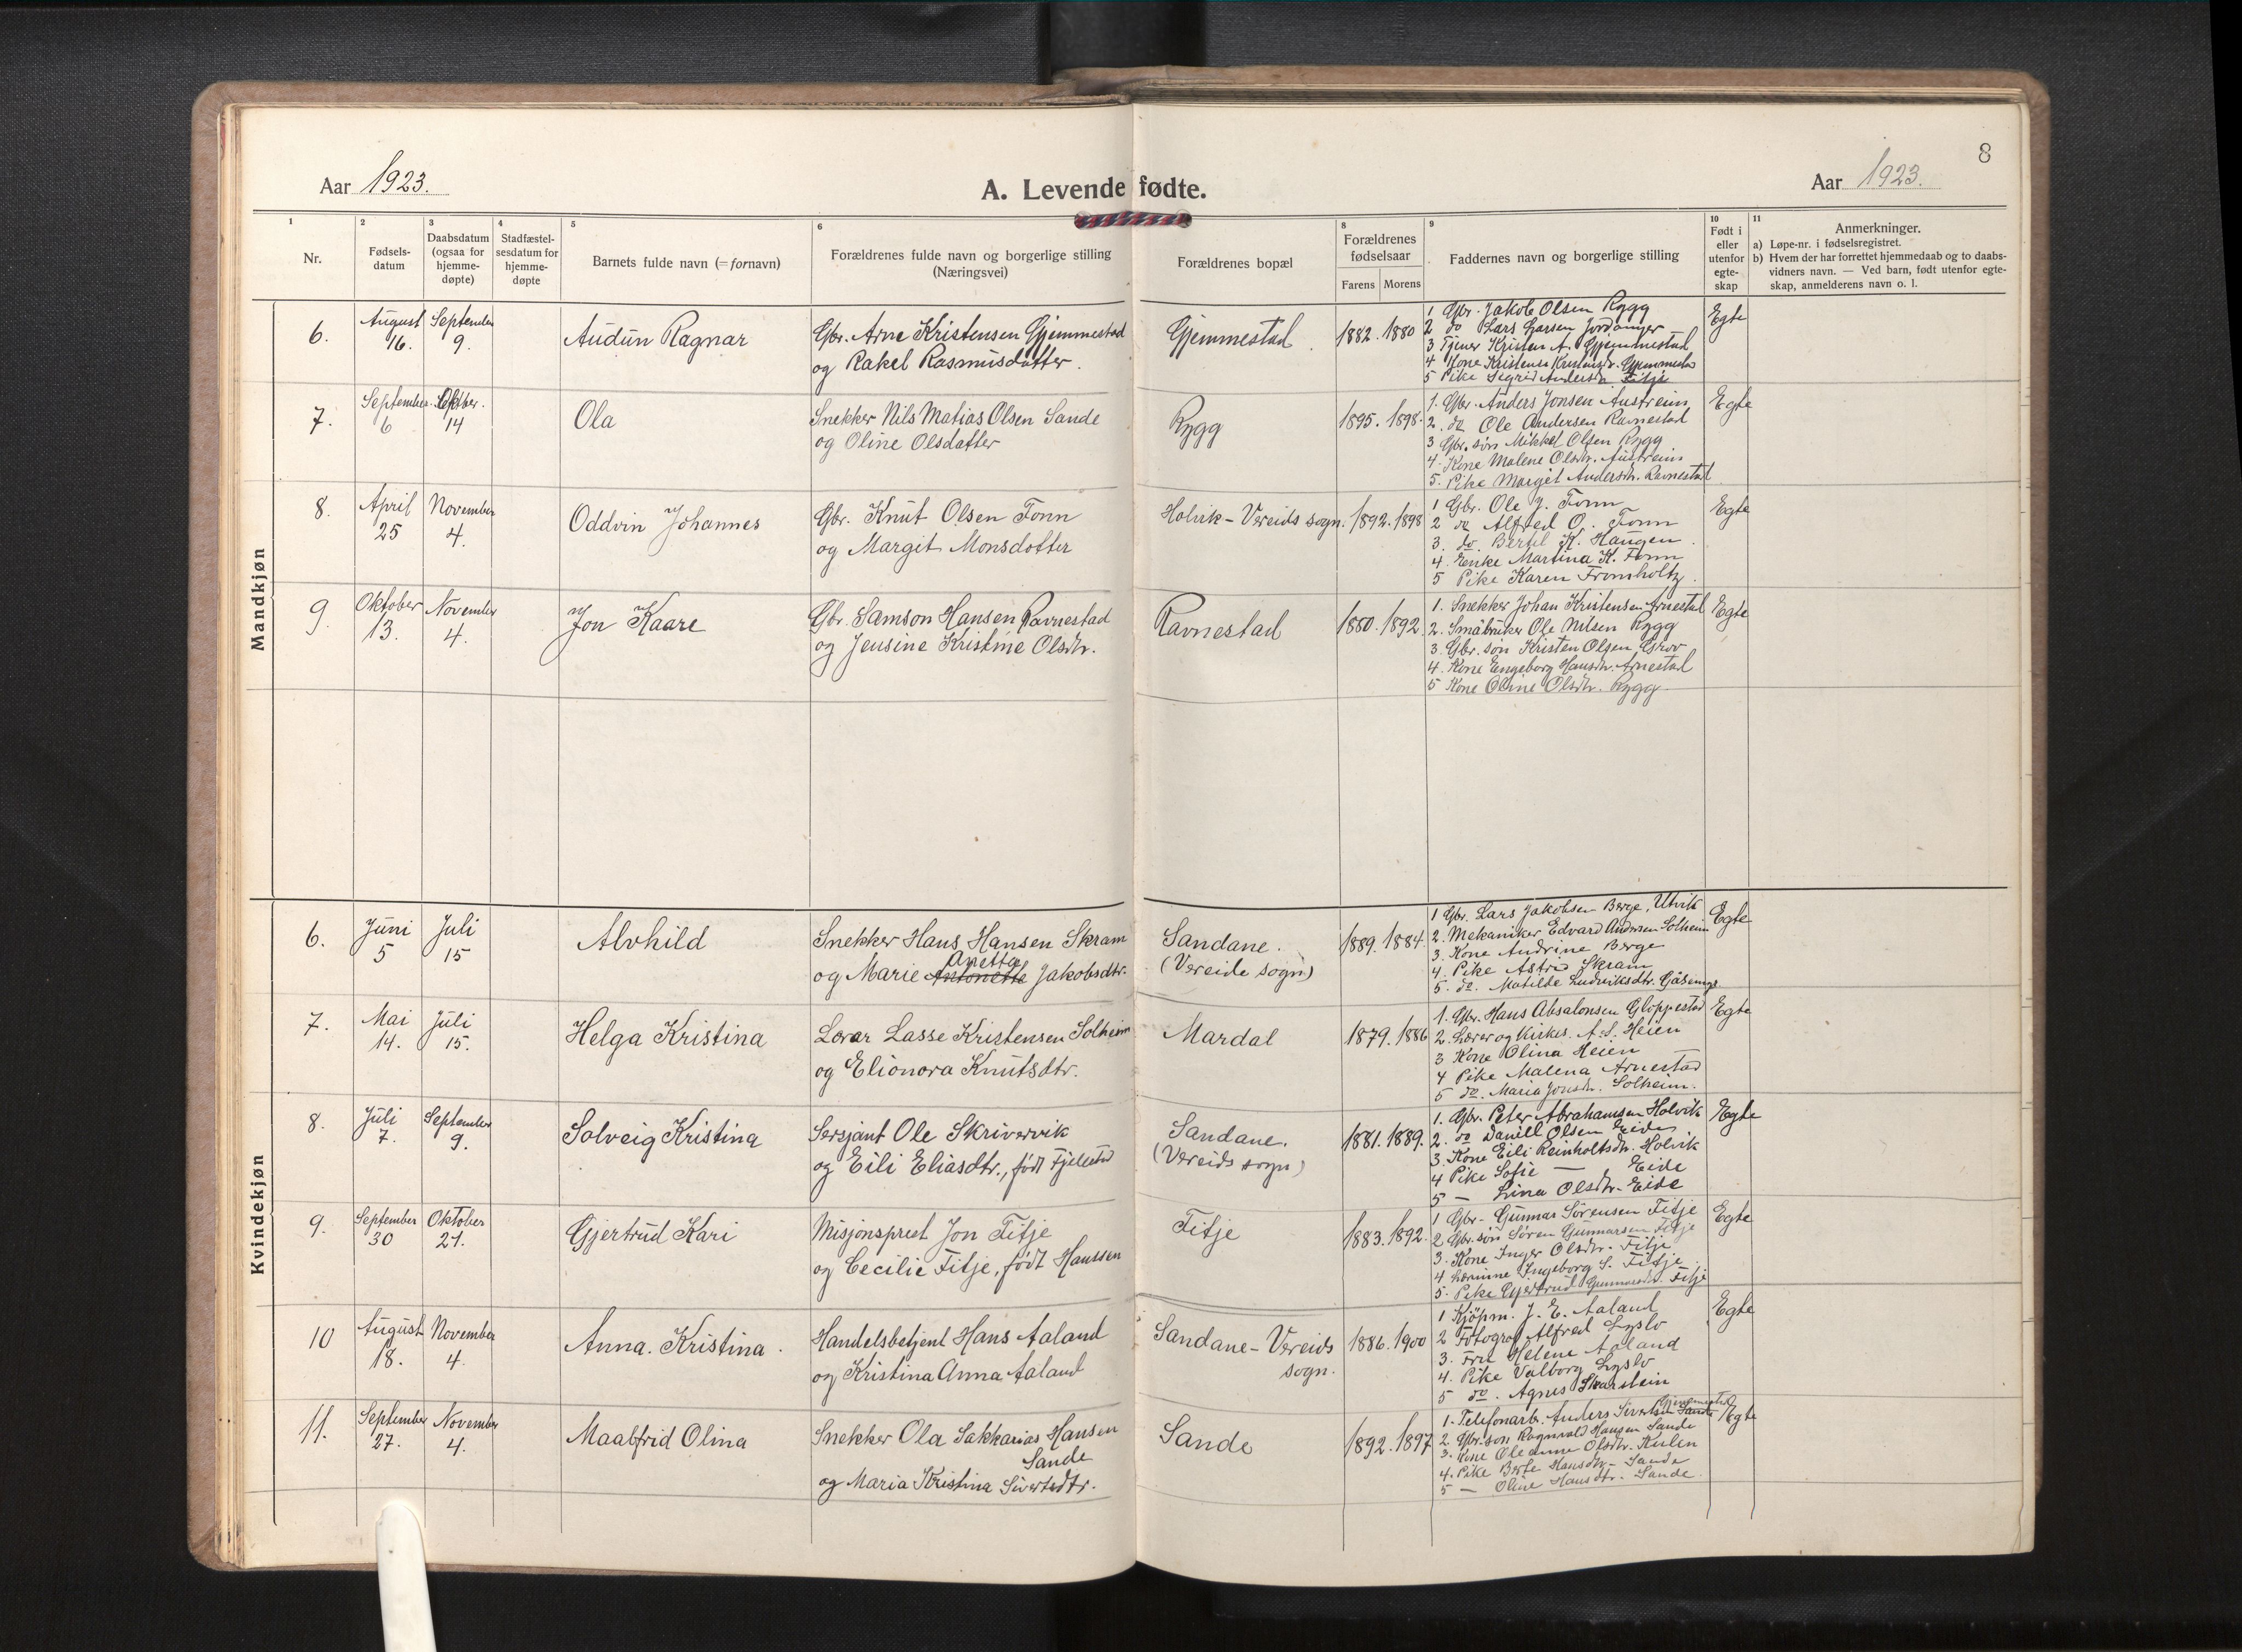 8
Aar 1923.
A. Levende fødte.
Aar 1923.
1 Nr.
2 Fødsels-datum
3 Daabsdatum (ogsaa for hjemme-døpte)
4 Stadfæstel-sesdatum for hjemme-døpte
5 Barnets fulde navn (=fornavn)
6 Forældrenes fulde navn og borgerlige stilling (Næringsvei)
Forældrenes bopæl
8 Forældrenes fødselsaar
Farens Morens
9 Faddernes navn og borgerlige stilling
10 Født i eller utenfor egte-skap
11 Anmerkninger.
a) Løpe-nr. i fødselsregistret.
b) Hvem der har forrettet hjemmedaab og to daabs-
vidners navn. — Ved barn, født utenfor egte-
skap, anmelderens navn o. l.
Mandkjøn
6. August 16. September 9. Audun Ragnar
Gbr. Arne Kristensen Gjemmestad
og Rakel Rasmusdatter.
Gjemmestad. 1882. 1880
1 Gbr. Jakob Olsen Rygg
2 do Lars Larsen Jordanger
3 Tjener Kristen A. Gjemmestad
4 Kone Kristense Kristensdr. Gjemmestad
5 Pike Sigrid Andersdr. Fitje
Egte
7. September 6 Oktber. 14 Ola
Snekker Nils Matias Olsen Sande
og Oline Olsdatter
Rygg 1895. 1898.
1. Gbr. Anders Jonsen Austrein
2. do Ole Andersen Ravnestad
3 Gbr. søn Mikkel Olsen Rygg
4. Kone Malene Olsdr. Austrein
5. Pike Margit Andersdr. Ravnestad
Egte
8. April 25 November 4. Oddvin Johannes
Gbr. Knut Olsen Tonn
og Margit Monsdotter
Holvik - Vereids sogn. 1892. 1898
1 Gbr. Ole J. Tonn
2 do Alfred O. Tonn
3. do. Bertil K. Haugen
4. Enke Martina K. Tonn
5 Pike Karen Fromholtz.
Egte
9. Oktober 13. November 4. Jon Kaare
Gbr. Samson Hansen Ravnestad
og Jensine Kristine Olsdtr.
Ravnestad 1880. 1892.
1. Snekker Johan Kristensen Arnestad
2. Småbruker Ole Nilsen Rygg
3. Gbr. søn Kristen Olsen Grov
4. Kone Engeborg Hansdr. Arnestad
5 Kone Oline Olsdtr. Rygg
Egte
Kvindekjøn
6. Juni 5 Juli 15 Alvhild
Snekker Hans Hansen Skram
Anetta
og Marie Antonette Jakobsdtr.
Sandane.
(Vereide sogn)
1889. 1884.
1 Gbr. Lars Jakobsen Berge, Utvik
2. Mekaniker Edvard Andersen Solheim
3. Kone Andrine Berge
4. Pike Astrid Skram
5. do. Matilde Ludviksdtr.
Egte
7. Mai 14. Juli 15. Helga Kristina
Lorar Lasse Kristensen Solheim
og Elionora Knutsdtr.
Mardal 1879. 1886
1. Gbr. Hans Absalonsen Gloppestad
2. Lærer og Kirkes. A. S. Heien
3 Kone Olina Heien
4 Pike Malena Arnestad
5 do. Maria Jonsdr. Solheim.
Egte
8. Juli 7. September 9. Solveig Kristina
Sersjant Ole Skrivervik
og Eili Eliasdtr., født Fjellestad
Sandane.
(Vereids sogn)
1881. 1889.
1. Gbr. Peter Abrahamsen Holvik
2. do Daniel Olsen Eide
3. Kone Eili Reinholtsdr. Holvik
4 Pike Sofie — Eide
5 — Lina Olsdtr. Eide
Egte
9. September 30 Oktober 21. Gjertrud Kari
Misjonsprest Jon Fitje
og Cecilie Fitje, født Hanssen
Fitje 1883. 1892.
1 Gbr - Gunnar Sørensen Fitje
2 Gbr. søn Søren Gunnarsen Fitje
3. Kone Inger Olsdtr. Fitje
4 Lærerinne Ingeborg S. Fitje
5. Pike Gjertrud Gunnarsdtr. Fitje
Egte
10 August 18. November 4. Anna. Kristina.
Handelsbetjent Hans Aaland
og Kristina Anna Aaland
Sandane - Vereids
sogn.
1886. 1900
1 Kjöpm. J. E. Aaland
2 Fotograf Alfred Lyslo
3. Fru Helene Aaland
4. Pike Valborg Lyslo
5 do. Agnes Skarstein
Egte
11. September 27. November 4. Maalfrid Olina
Snekker Ola Sakkarias Hansen
Sande
og Maria Kristina Sivertsdtr.
Sande 1892. 1897
Gjemmestad
1. Telefonarb. Anders Sivertsen Sande
2. Gbr. søn Ragnvald Hansen Sande
3. Kone Oleanne Olsdtr. Kulen
4. Pike Berte Hansdtr - Sande
5 — Oline Hansdtr. Sande.
Egte